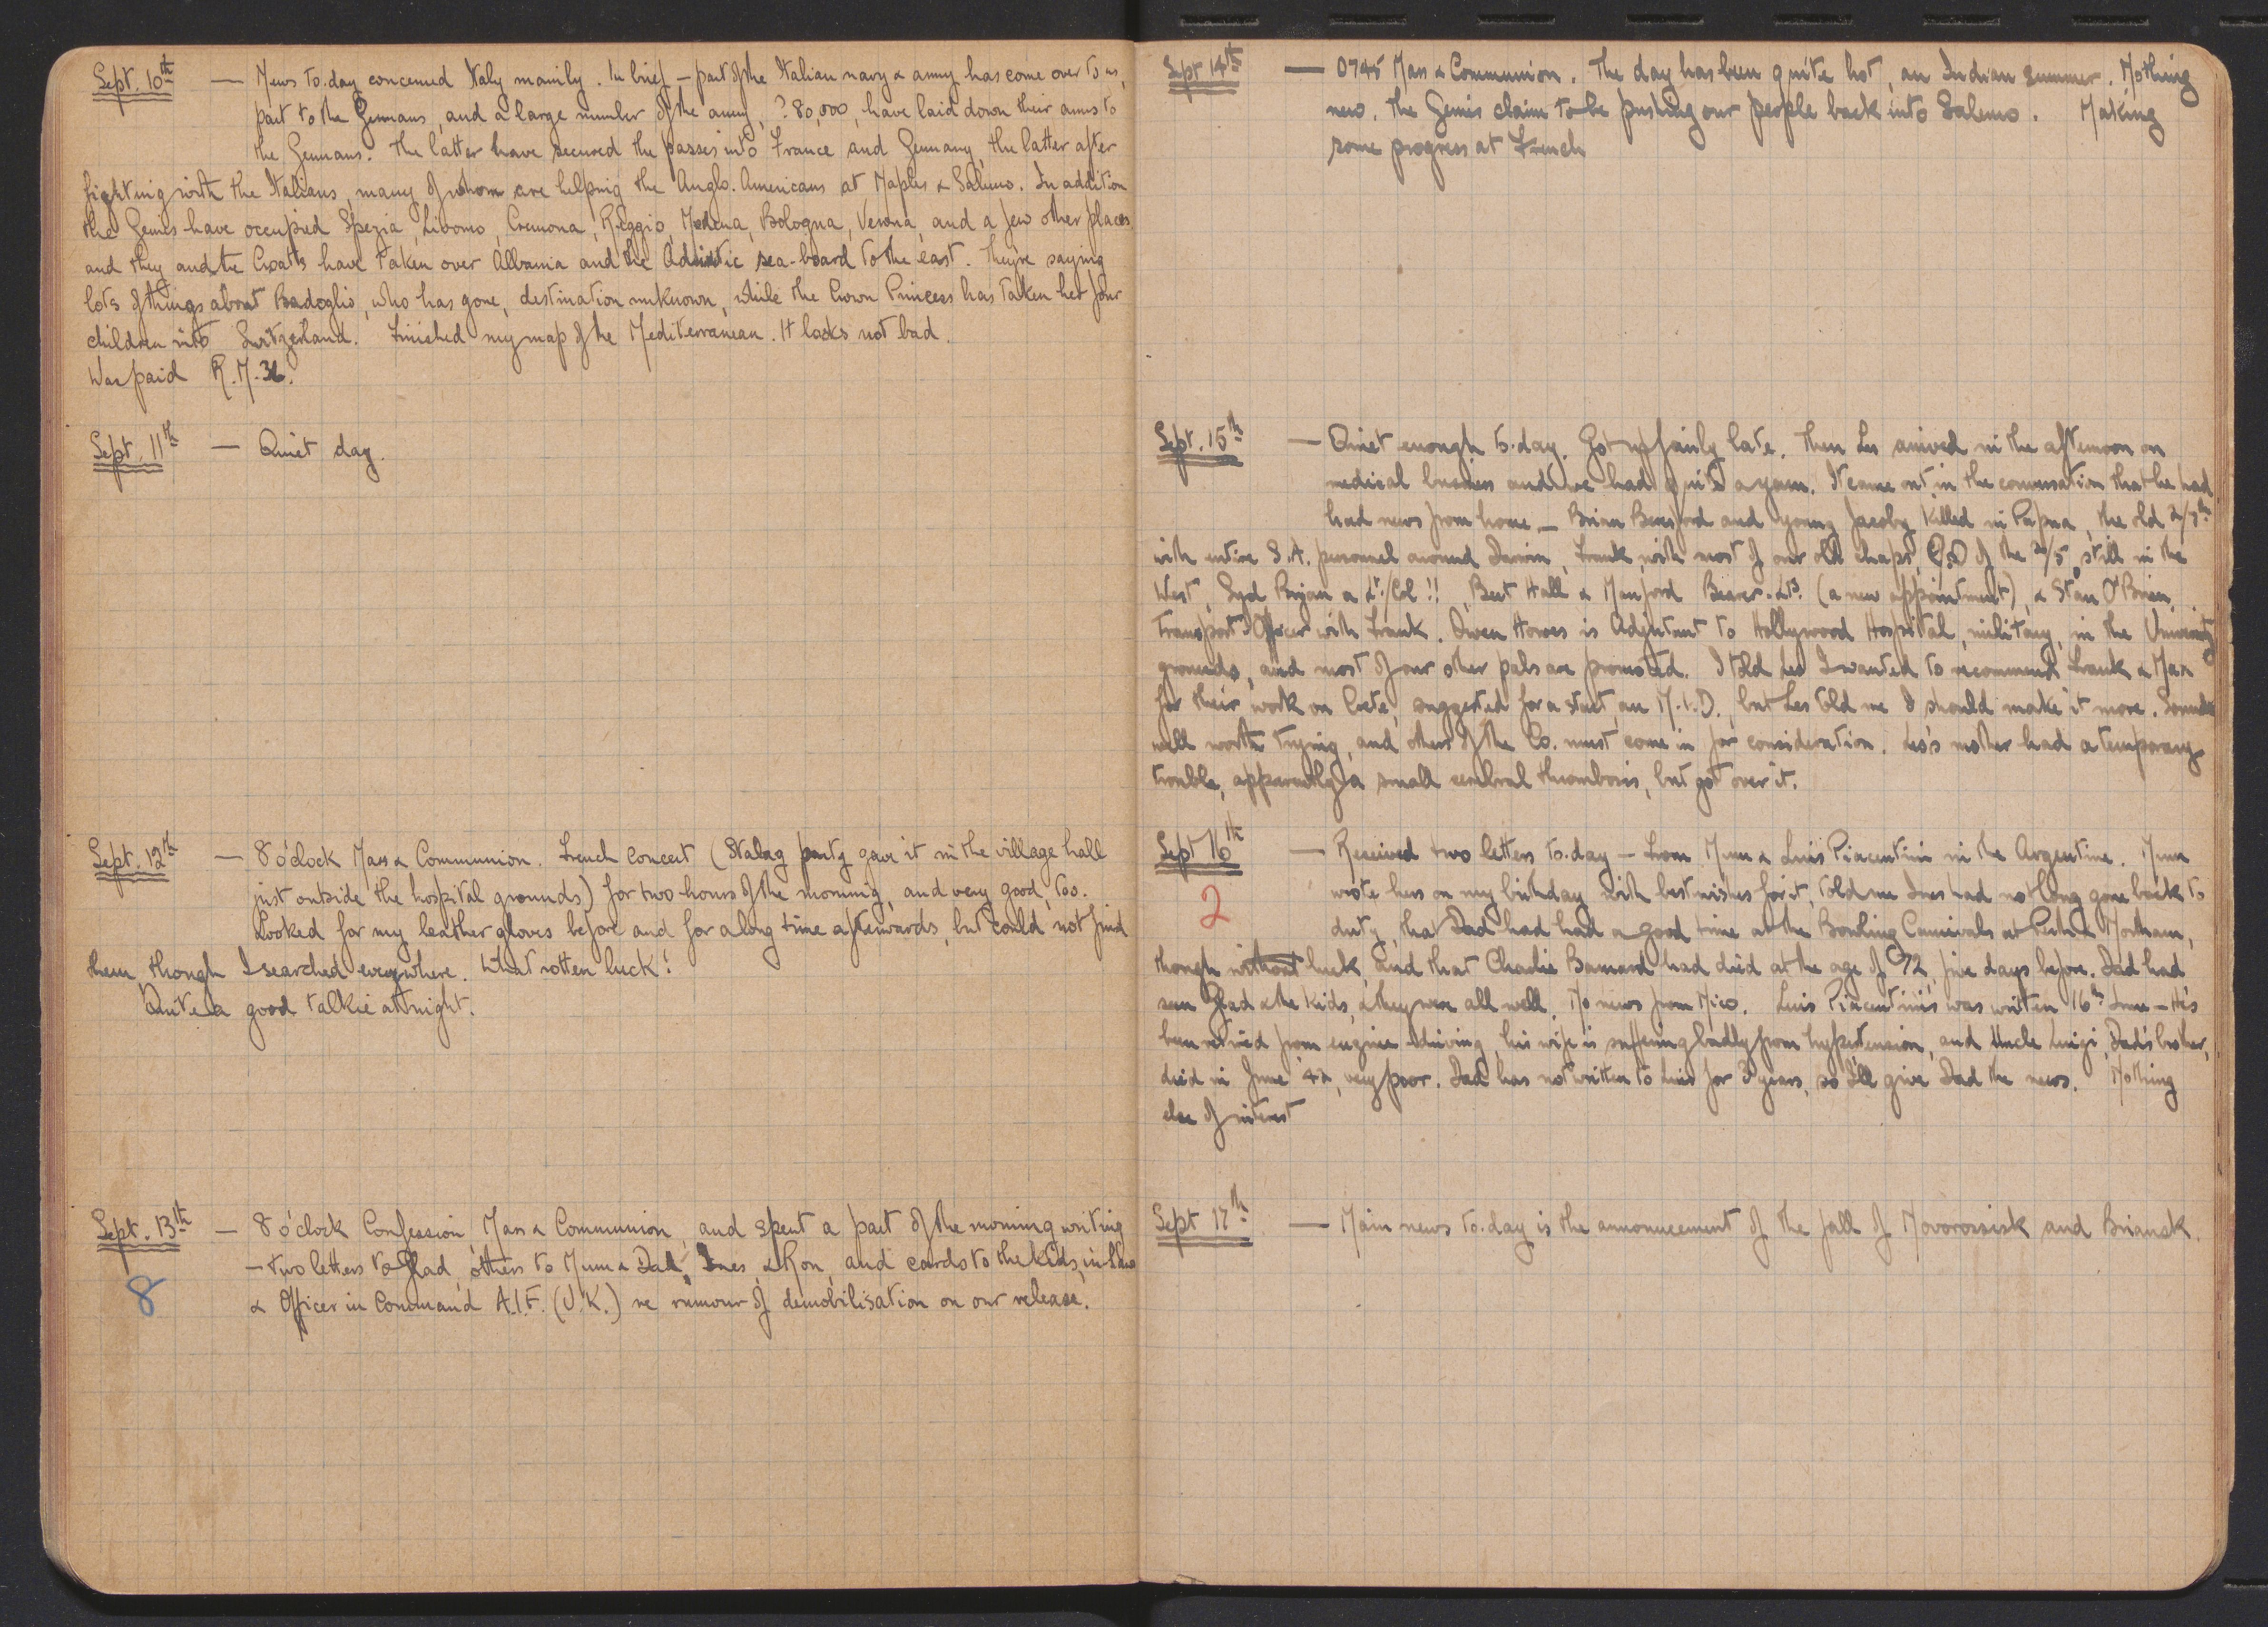 Sept. 10th — News to.day concerned Italy mainly. In brief – part of the Italian navy & army has come over to us,
part to the Germans, and a large number of the army, ? 80,000, have laid down their arms to
the Germans. The latter have secured the passes into France and Germany, the latter after
fighting with the Italians, many of whom are helping the Anglo-Americans at Naples & Salerno. In addition
the Gerries have occupied Spezia, Livorno, Cremona, Reggio, Modena, Bologna, Verona, and a few other places,
and they and the Croats have taken over Albania and the Adriatic sea-board to the east. They're saying
lots of things about Badoglio, who has gone, destination unknown, while the Crown Princess has taken her four
children into Switzerland. Finished my map of the Mediterranean. It looks not bad.
Was paid R.M.
Sept. 11th — Quiet day.
Sept. 12th — 8 o'clock Mass & Communion. French concert (Stalag party gave it in the village hall
just outside the hospital grounds) for two hours of the morning, and very good, too.
Looked for my leather gloves before and for a long time afterwards, but could not find
them, though I searched everywhere. What rotten luck!
Quite a good talkie at night.
Sept. 13th — 8 o'clock Confession, Mass & Communion, and spent a part of the morning writing
8
– two letters to Glad, others to Mum & Dad, Ines, & Ron, and cards to the Kids, in-laws
& Officer in Command A.I.F. (U.K.) re rumour of demobilisation on our release.
Sept 14th — 0745 Mass & Communion. The day has been quite hot, an Indian summer. Nothing
new. The Gerries claim to be pushing our people back into Salerno. Making
some progress at French
Sept. 15th — Quiet enough to.day. Got up fairly late. Then Les arrived in the afternoon on
medical business and we had quite a yarn. It came out in the conversation that he had
had news from home – Brian and young Jacoby killed in Papua, the old
with entire S.A. personnel around Darwin, Frank, with most of our old chaps, of the 2/5, still in the
West, Syd Bryan a Lt/Col!!, Bert Hall & Manford (a new appointment), & Stan O'Brien
Transport Officer with Frank. Owen Howes is Adjutant to Hollywood Hospital, military, in the University
grounds, and most of our other pals are promoted. I told Les I wanted to recommend Frank & Max
for their work on Crete, suggested for a start, an M.I.D., but Les told me I should make it more. Sounds
well worth trying, and others of the Co. must come in for consideration. Les's mother had a temporary
trouble, apparently a small cerebral thrombosis, but got over it.
Sept 16th — Received two letters to.day – from Mum & Luis Piacentini in the Argentine. Mum
2
wrote hers on my birthday with best wishes for it, told me Ines had not long gone back to
duty, that Dad had had a good time at the Bowling Carnivals at Perth & Northam,
though without luck, and that Charlie Barnard had died at the age of 72, five days before. Dad had
seen Glad & the kids, & they were all well. No news from Nico. Luis Piacentini's was written 16th June – He's
been retired from engine driving, his wife is suffering badly from hypertension, and Uncle Luigi, Dad's brother,
died in June '42, very poor. Dad has not written to him for 3 years, so I'll give Dad the news. Nothing
else of interest
Sept 17th — Main news to.day is the announcement of the fall of Novorossisk and Briansk.